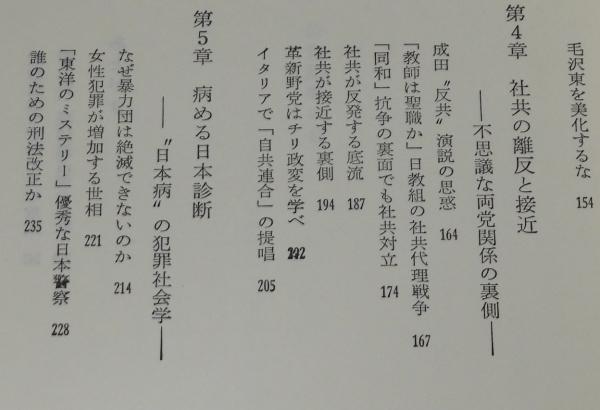 毛沢東を美化するな 154
第4章 社共の離反と接近
――不思議な両党関係の裏側――
成田〝反共〟演説の思惑 164
「教師は聖職か」日教組の社共代理戦争 167
「同和」抗争の裏面でも社共対立 174
社共が反発する底流 187
社共が接近する裏側 194
革新野党はチリ政変を学べ
イタリアで「自共連合」の提唱 205
第5章 病める日本診断
――〝日本病〟の犯罪社会学――
なぜ暴力団は絶滅できないのか 214
女性犯罪が増加する世相 221
「東洋のミステリー」優秀な日本警察 228
誰のための刑法改正か 235